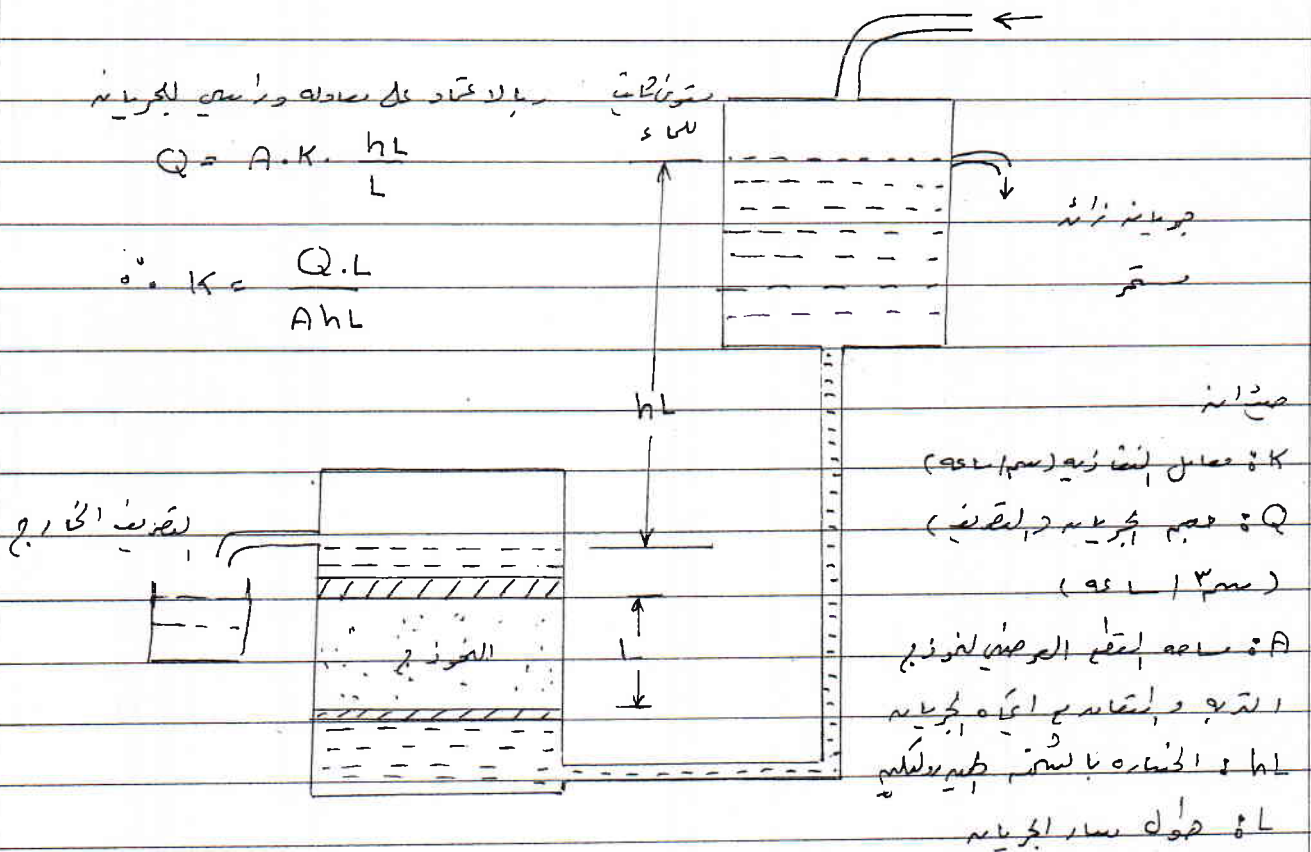 وبالاعتماد على معادلة دارسي للجريان
Q = A.K. hL / L
∴ K = Q.L / A hL
مستوى ثابت
للماء
جريان زائد
مستمر
hL
التصريف الخارج
النموذج
L
حيث ان
K: معامل النفاذية (سم/ساعة)
Q: حجم الجريان (التصريف)
(سم٣/ساعة)
A: مساحة المقطع العرضي لنموذج
التربة والمتعامد مع اتجاه الجريان
hL: الخسارة بالشحنة الهيدروليكية
L: طول مسار الجريان